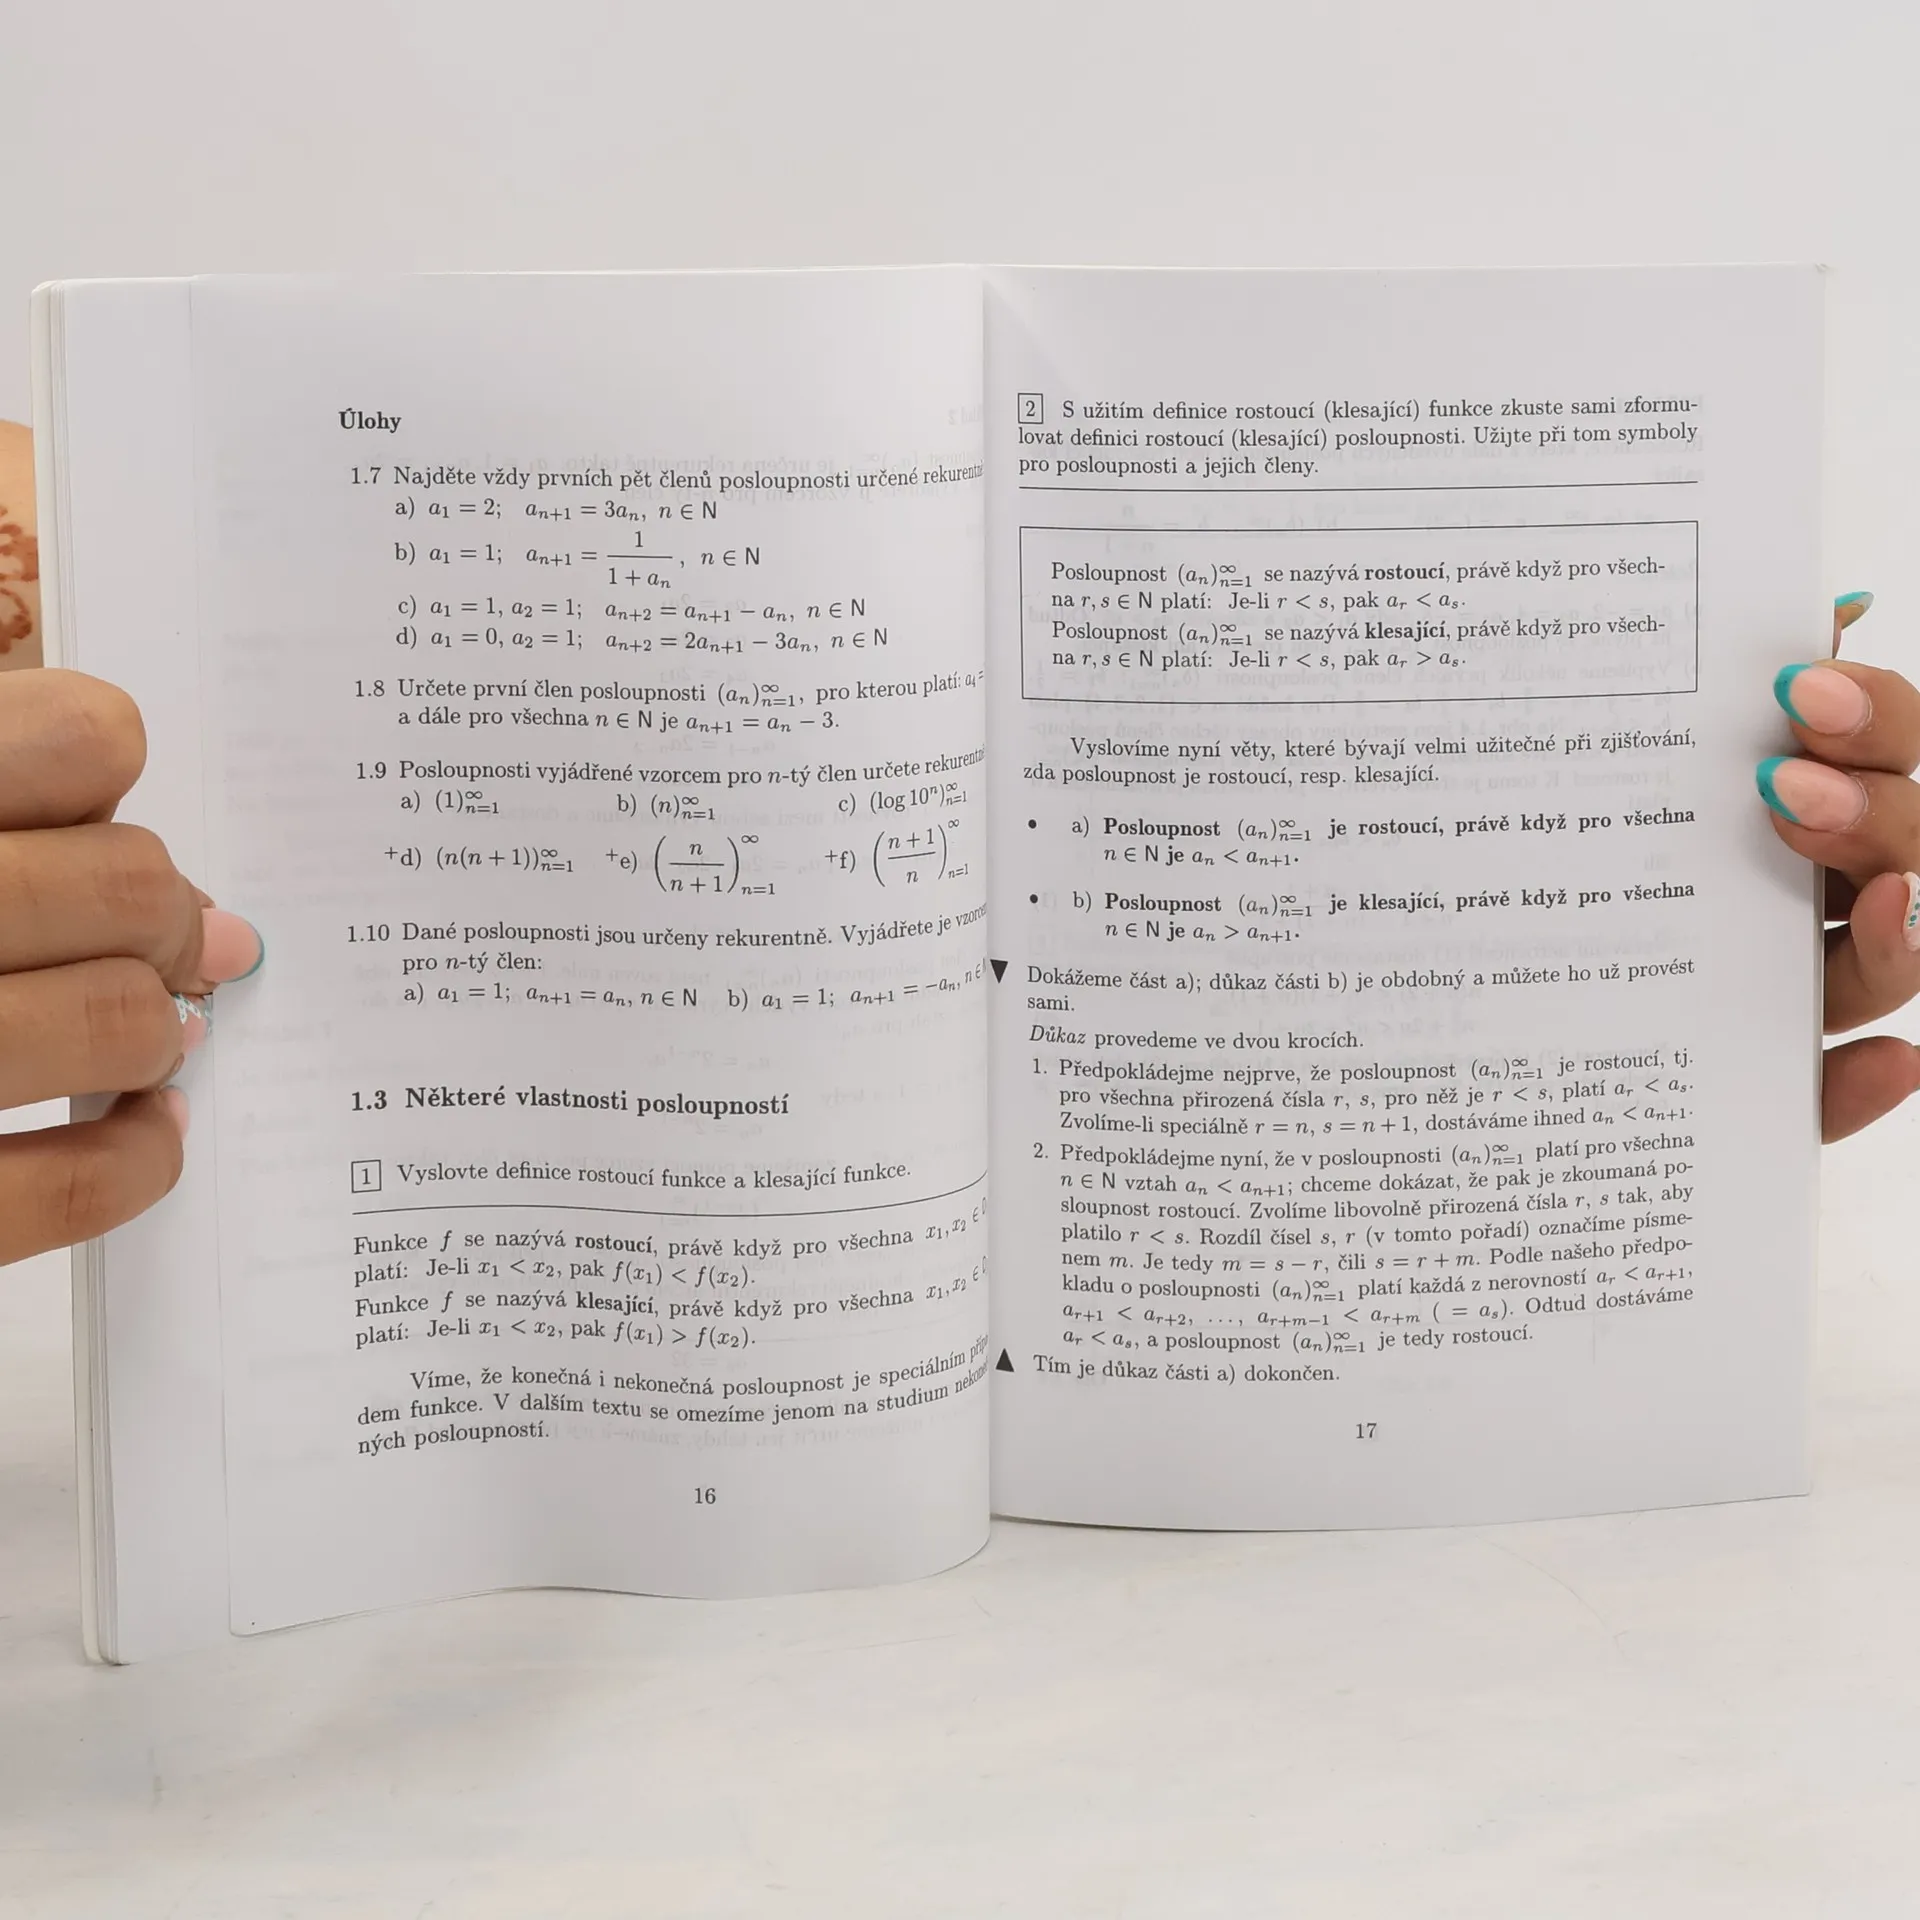 Úlohy
1.7 Najděte vždy prvních pět členů posloupnosti určené
a) a₁ = 2; aₙ₊₁ = 3aₙ, n ∈ N
b) a₁ = 1; aₙ₊₁ = 1/(1 + aₙ), n ∈ N
c) a₁ = 1, a₂ = 1; aₙ₊₂ = aₙ₊₁ − aₙ, n ∈ N
d) a₁ = 0, a₂ = 1; aₙ₊₂ = 2aₙ₊₁ − 3aₙ, n ∈ N
1.8 Určete první člen posloupnosti (aₙ)ₙ₌₁^∞, pro kterou platí: a₄ =
a dále pro všechna n ∈ N je aₙ₊₁ = aₙ − 3.
1.9 Posloupnosti vyjádřené vzorcem pro n-tý člen určete
a) (1)ₙ₌₁^∞ b) (n)ₙ₌₁^∞ c) (log 10ⁿ)ₙ₌₁^∞
⁺d) (n(n + 1))ₙ₌₁^∞ ⁺e) (n/(n + 1))ₙ₌₁^∞ ⁺f) ((n + 1)/n)ₙ₌₁^∞
1.10 Dané posloupnosti jsou určeny rekurentně. Vyjádřete je
pro n-tý člen:
a) a₁ = 1; aₙ₊₁ = aₙ, n ∈ N b) a₁ = 1; aₙ₊₁ = −aₙ, n ∈
1.3 Některé vlastnosti posloupností
1 Vyslovte definice rostoucí funkce a klesající funkce.
Funkce f se nazývá rostoucí, právě když pro všechna x₁, x₂ ∈
platí: Je-li x₁ < x₂, pak f(x₁) < f(x₂).
Funkce f se nazývá klesající, právě když pro všechna x₁, x₂ ∈
platí: Je-li x₁ < x₂, pak f(x₁) > f(x₂).
Víme, že konečná i nekonečná posloupnost je speciálním
dem funkce. V dalším textu se omezíme jenom na studium
ných posloupností.
16
2 S užitím definice rostoucí (klesající) funkce zkuste sami zformu-
lovat definici rostoucí (klesající) posloupnosti. Užijte při tom symboly
pro posloupnosti a jejich členy.
Posloupnost (aₙ)ₙ₌₁^∞ se nazývá rostoucí, právě když pro všech-
na r, s ∈ N platí: Je-li r < s, pak aᵣ < aₛ.
Posloupnost (aₙ)ₙ₌₁^∞ se nazývá klesající, právě když pro všech-
na r, s ∈ N platí: Je-li r < s, pak aᵣ > aₛ.
Vyslovíme nyní věty, které bývají velmi užitečné při zjišťování,
zda posloupnost je rostoucí, resp. klesající.
• a) Posloupnost (aₙ)ₙ₌₁^∞ je rostoucí, právě když pro všechna
n ∈ N je aₙ < aₙ₊₁.
• b) Posloupnost (aₙ)ₙ₌₁^∞ je klesající, právě když pro všechna
n ∈ N je aₙ > aₙ₊₁.
▼ Dokážeme část a); důkaz části b) je obdobný a můžete ho už provést
sami.
Důkaz provedeme ve dvou krocích.
1. Předpokládejme nejprve, že posloupnost (aₙ)ₙ₌₁^∞ je rostoucí, tj.
pro všechna přirozená čísla r, s, pro něž je r < s, platí aᵣ < aₛ.
Zvolíme-li speciálně r = n, s = n + 1, dostáváme ihned aₙ < aₙ₊₁.
2. Předpokládejme nyní, že v posloupnosti (aₙ)ₙ₌₁^∞ platí pro všechna
n ∈ N vztah aₙ < aₙ₊₁; chceme dokázat, že pak je zkoumaná po-
sloupnost rostoucí. Zvolíme libovolně přirozená čísla r, s tak, aby
platilo r < s. Rozdíl čísel s, r (v tomto pořadí) označíme písme-
nem m. Je tedy m = s − r, čili s = r + m. Podle našeho předpo-
kladu o posloupnosti (aₙ)ₙ₌₁^∞ platí každá z nerovností aᵣ < aᵣ₊₁,
aᵣ₊₁ < aᵣ₊₂, ..., aᵣ₊ₘ₋₁ < aᵣ₊ₘ ( = aₛ). Odtud dostáváme
aᵣ < aₛ, a posloupnost (aₙ)ₙ₌₁^∞ je tedy rostoucí.
▲ Tím je důkaz části a) dokončen.
17